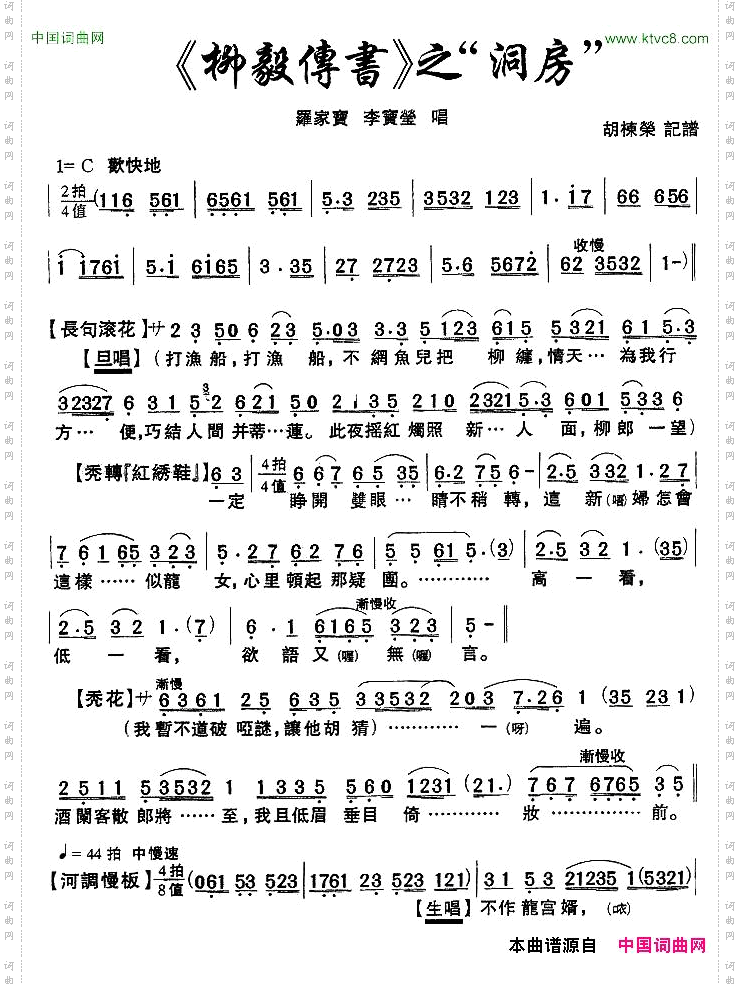 中国词曲网
www.ktvc8.com
《柳毅傳書》之“洞房”
羅家寶 李寶瑩 唱
胡棟榮 記譜
1= C 歡快地
2拍
4值
(116 561 | 6561 561 | 5.3 235 | 3532 123 | 1.17 | 66 656 |
1 1761 | 5.1 6165 | 3.35 | 27 2723 | 5.6 5672 | 62 3532 | 1-)
收慢
【長句滚花】サ 2 3 50 6 23 5.03 3.3 5 123 615 532521 61 5.3
【旦唱】(打漁船,打漁 船,不網魚兒把 柳纏,情天…為我行
方… 便,巧結人間并蒂…蓮。此夜摇紅燭照 新…人 面,柳郎一望)
【秃轉『紅綉鞋』】63
4拍
4值
6 67 65 35 | 6.2 75 6- | 2.5 332 1.27 |
一定 睁開 雙眼… 睛不稍轉,這 新(喎)婦怎會
7 6165 323 | 5.27 62 76 | 5 5 615.(3) | 2.5 32 1.(35) |
這樣…… 似龍 女,心里頓起那疑 團。………… 高一看,
漸慢收
2.5 32 1.(7) | 6.1 6165 323 | 5-
低一看, 欲語又(喎)無(喎) 言。
漸慢
【秃花】サ 6361 25 635 33532 203 7.26 1 (35 231)
(我暫不道破 啞謎,讓他胡 猜)………… 一(呀) 遍。
漸慢收
2511 53532 1 1335 560 1231 (21.) 767 6765 35
酒闌客散 郎將……至,我且低眉 垂目 倚………… 妝……前。
♩=44 拍 中慢速
【河調慢板】
4拍
8值
(061 53 523 | 1761 23 523 121) | 31 53 21235 1(5321)
【生唱】不作 龍宫婿,(咴)
本曲谱源自 中国词曲网